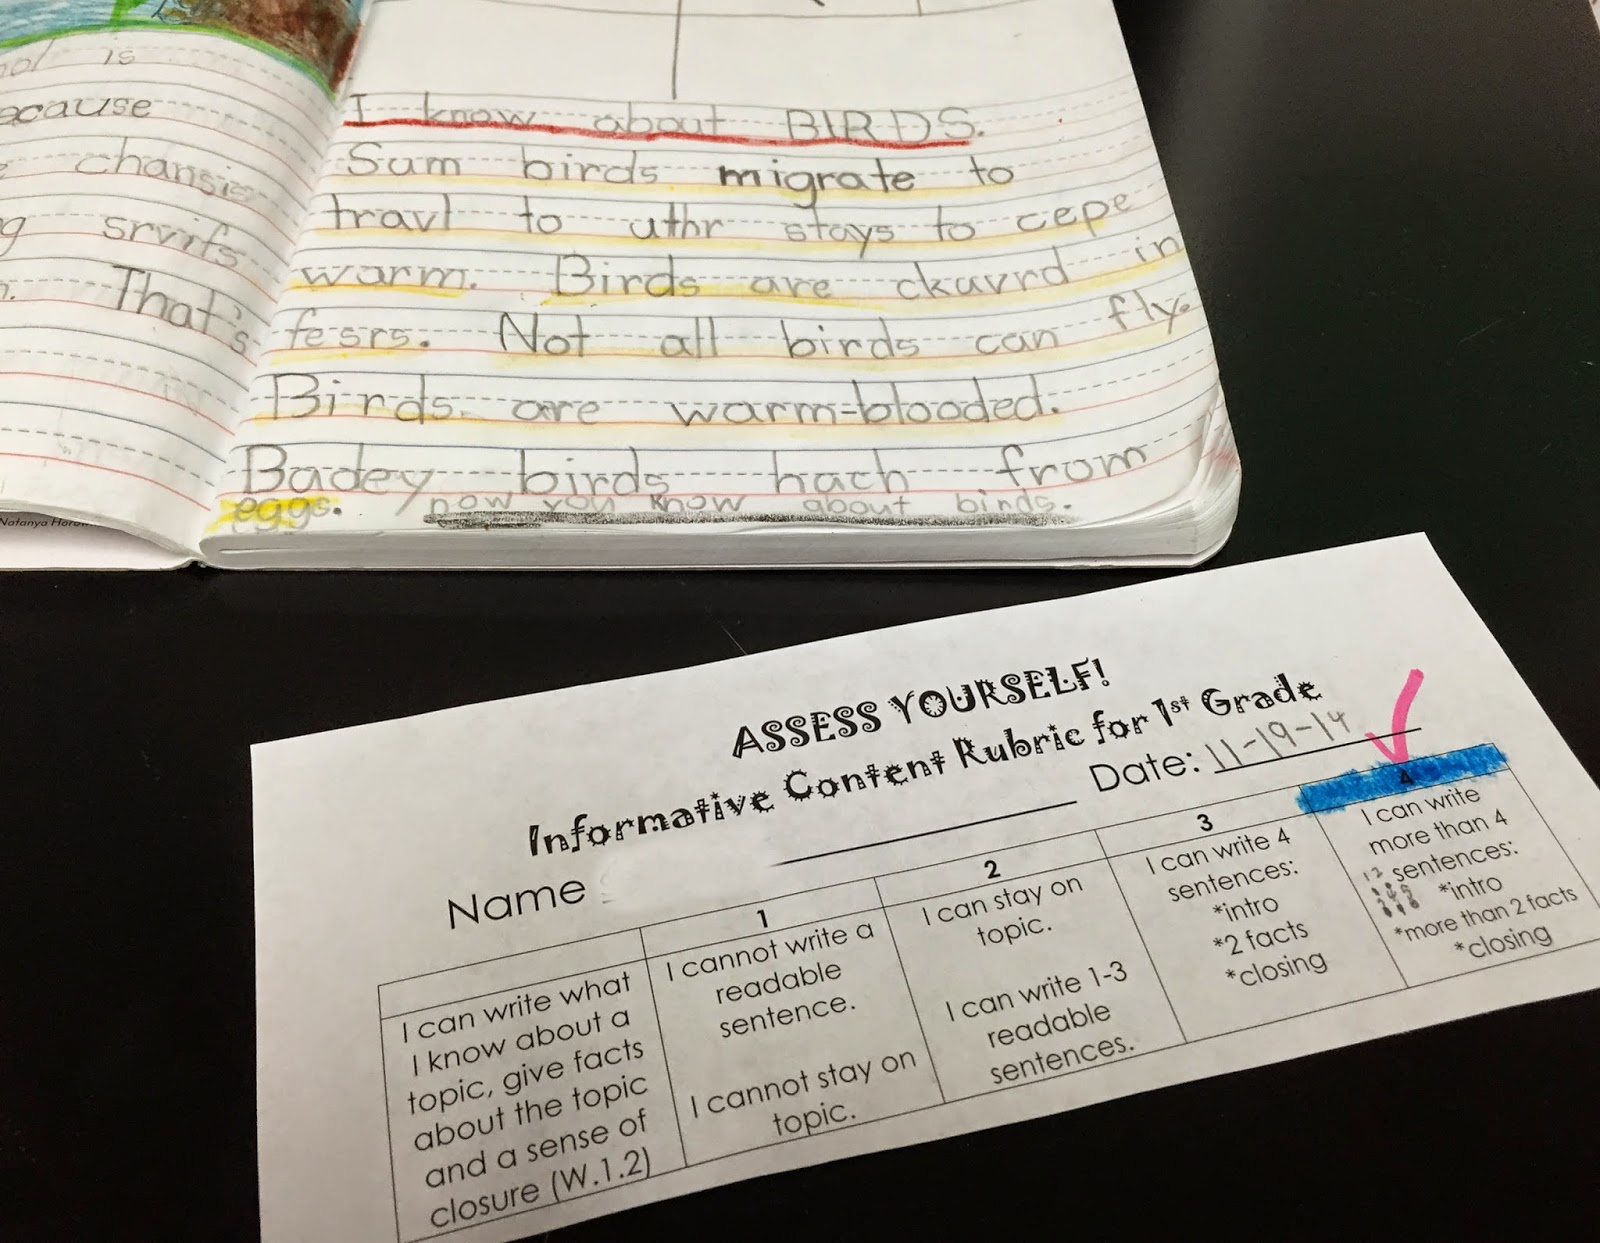 is
because
chansis
srvifs
That's
I know about BIRDS.
Sum birds migrate to
travl to uthr stays to cepe
warm. Birds are ckuvrd in
fesrs. Not all birds can fly.
Birds are warm-blooded.
Badey birds hach from
eggs. now you know about birds.
ASSESS YOURSELF!
Informative Content Rubric for 1st Grade
Name Date: 11-19-14
1
2
3
4
I can write what
I know about a
topic, give facts
about the topic
and a sense of
closure (W.1.2)
I cannot write a
readable
sentence.
I cannot stay on
topic.
I can stay on
topic.
I can write 1-3
readable
sentences.
I can write 4
sentences:
*intro
*2 facts
*closing
I can write
more than 4
sentences:
*intro
*more than 2 facts
*closing